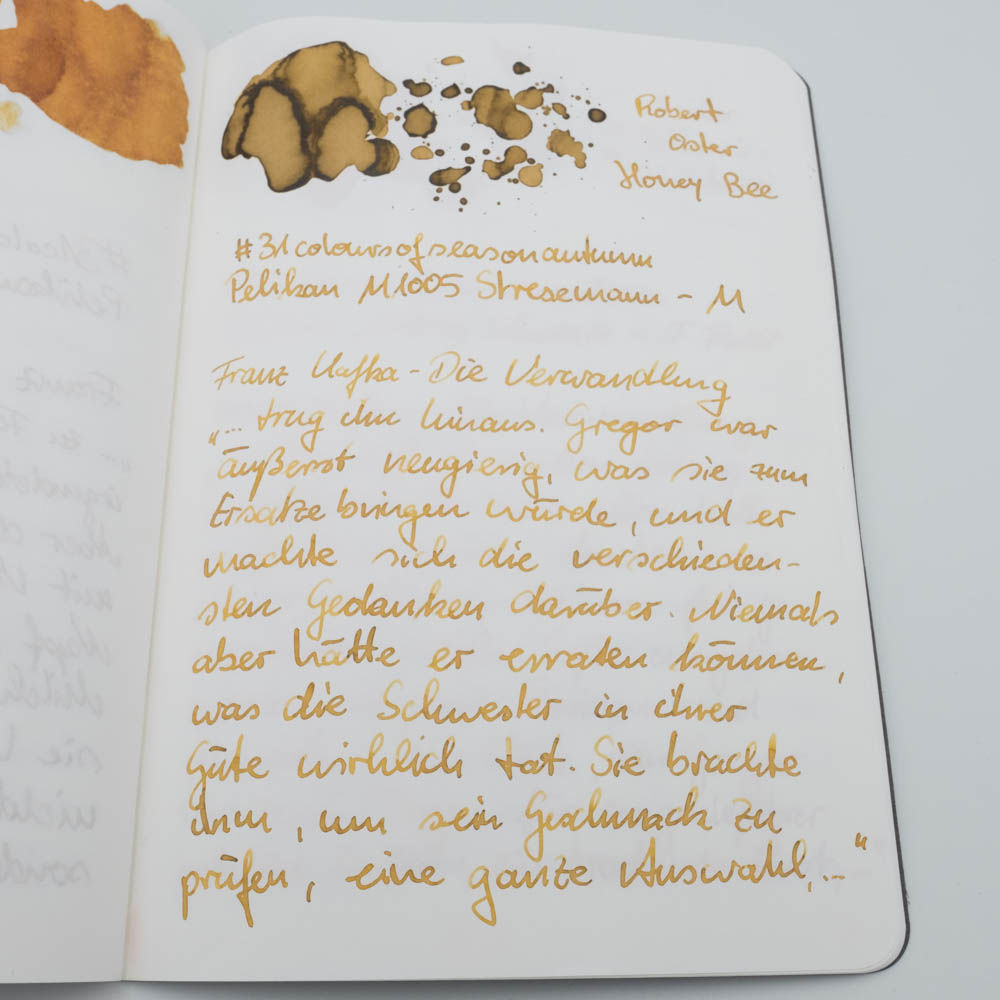 Robert
Oster
Honey Bee
#31coloursofseasonautumn
Pelikan M1005 Stresemann - M
Franz Kafka - Die Verwandlung
"... trug ihn hinaus. Gregor war
äußerst neugierig, was sie zum
Ersatze bringen würde, und er
machte sich die verschieden-
sten Gedanken darüber. Niemals
aber hätte er erraten können,
was die Schwester in ihrer
Güte wirklich tat. Sie brachte
ihm, um sein Geschmack zu
prüfen, eine ganze Auswahl,..."